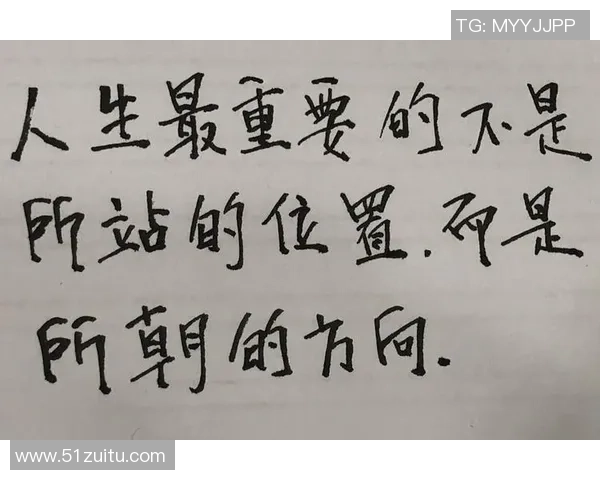 TG: MYYJJPP
人生最重要的不是
所站的位置.而是
所朝的方向.
www.51zuitu.com